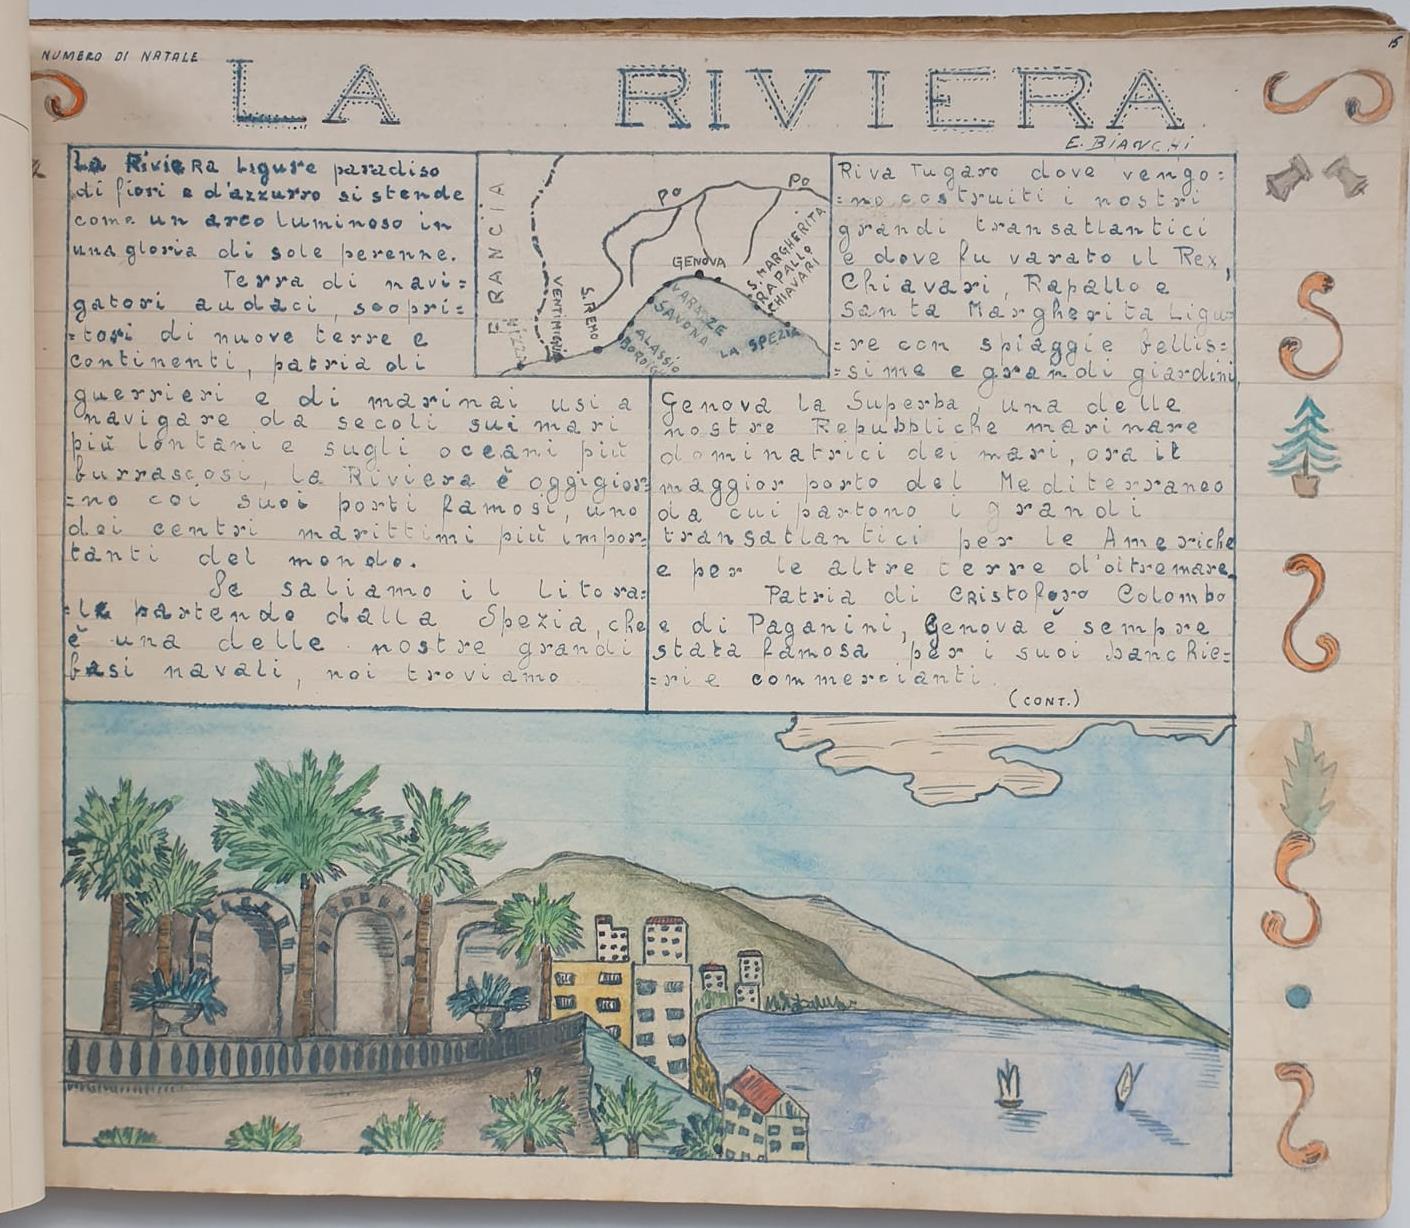 NUMERO DI NATALE
15
LA RIVIERA
E. BIANCHI
La Riviera Ligure paradiso
di fiori e d'azzurro si stende
come un arco luminoso in
una gloria di sole perenne.
Terra di navi=
gatori audaci, scopri=
=tori di nuove terre e
continenti, patria di
guerrieri e di marinai usi a
navigare da secoli sui mari
più lontani e sugli oceani più
burrascosi, la Riviera è oggigior=
=no coi suoi porti famosi, uno
dei centri marittimi più impor=
tanti del mondo.
Se saliamo il litora=
=le partendo dalla Spezia, che
è una delle nostre grandi
basi navali, noi troviamo
FRANCIA
NIZZA
VENTIMIGLIA
S. REMO
PO
PO
GENOVA
S. MARGHERITA
RAPALLO
CHIAVARI
VARAZZE
SAVONA
ALASSIO
LA SPEZIA
Riva Tugaro dove vengo=
=no costruiti i nostri
grandi transatlantici
e dove fu varato il Rex,
Chiavari, Rapallo e
Santa Margherita Ligu=
=re con spiaggie bellis=
=sime e grandi giardini,
Genova la Superba, una delle
nostre Repubbliche marinare
dominatrici dei mari, ora il
maggior porto del Mediterraneo
da cui partono i grandi
transatlantici per le Americhe
e per le altre terre d'oltremare.
Patria di Cristoforo Colombo
e di Paganini, Genova è sempre
stata famosa per i suoi banchie=
=ri e commercianti.
(CONT.)